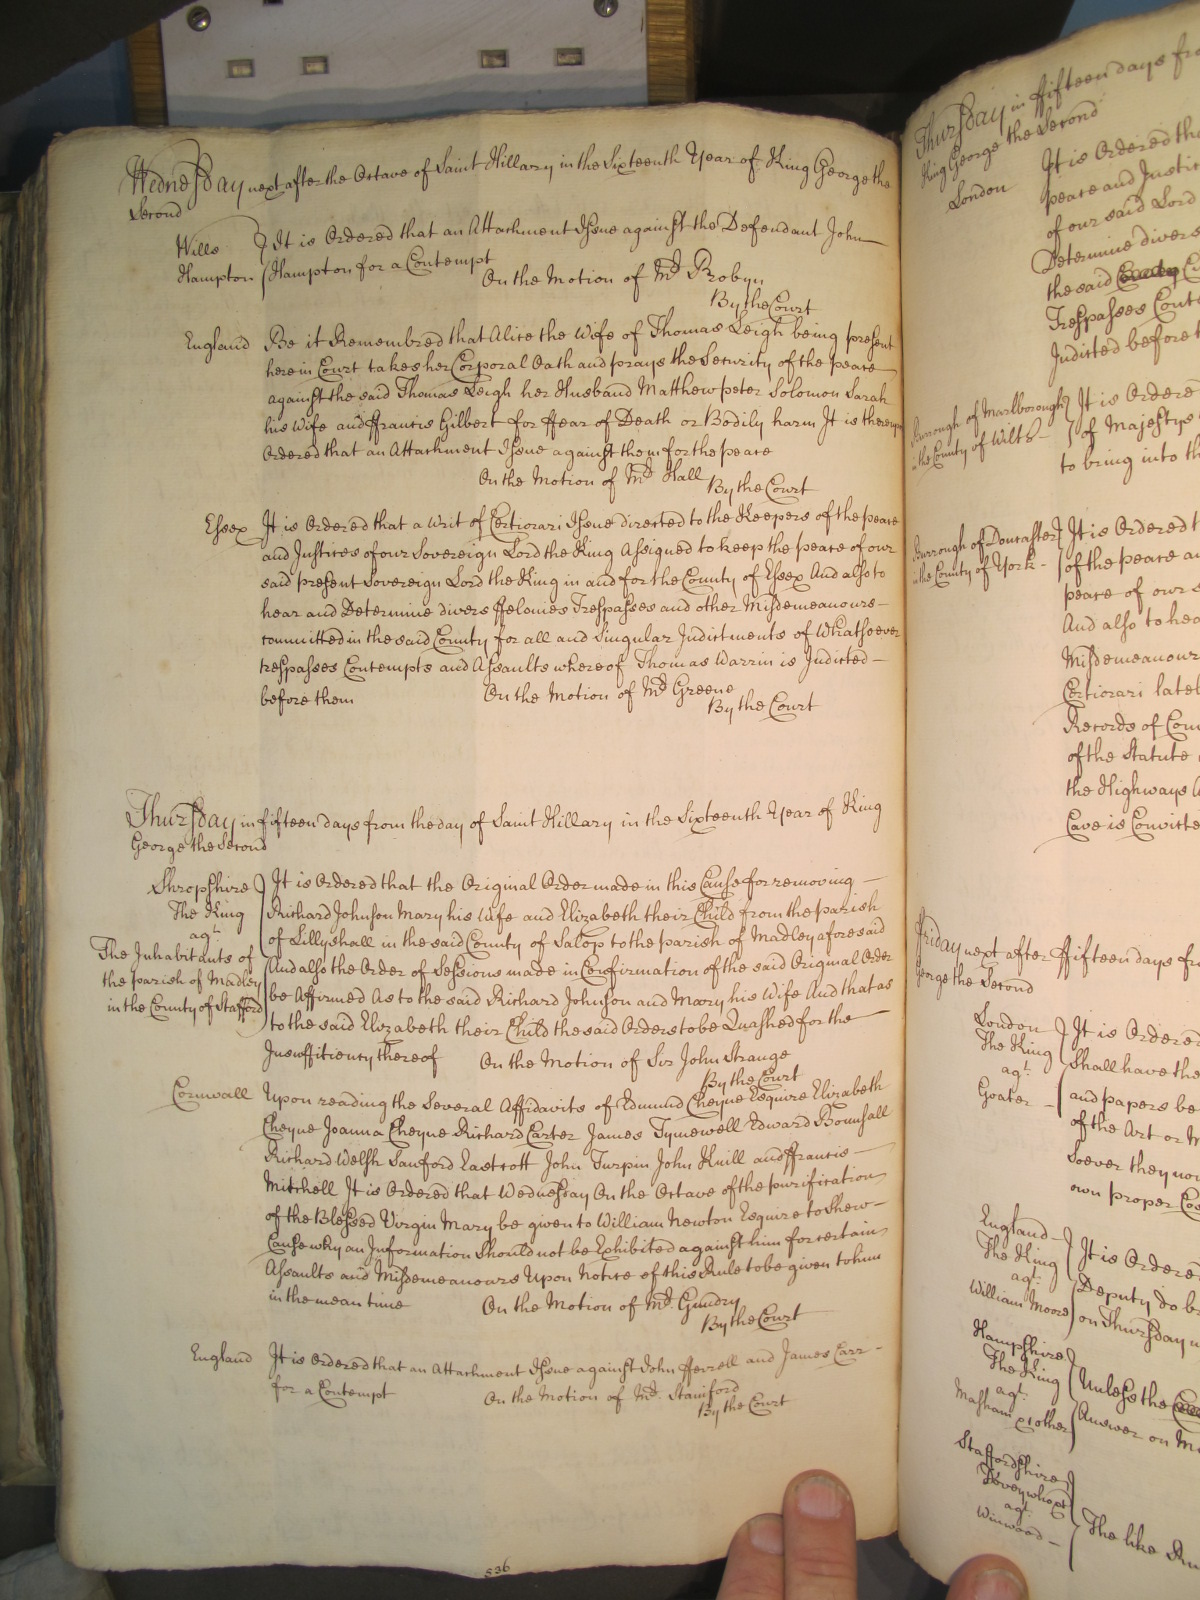 Wednesday next after the Octave of Saint Hillary in the Sixteenth Year of King George the
Second
Wills } It is Ordered that an Attachment Issue against the Defendant John
Hampton } Hampton for a Contempt
On the Motion of Mr. Robyn
By the Court
England Be it Remembered that Alice the Wife of Thomas Leigh being present
here in Court takes her Corporal Oath and prays the Security of the peace
against the said Thomas Leigh her Husband Matthew peter Solomon Sarah
his Wife and ffrancis Gilbert for ffear of Death or Bodily harm It is thereupon
Ordered that an Attachment Issue against them for the peace
On the Motion of Mr. Hall
By the Court
Essex It is Ordered that a Writ of Certiorari Issue directed to the Keepers of the peace
and Justices of our Sovereign Lord the King Assigned to keep the peace of our
said present Sovereign Lord the King in and for the County of Essex And also to
hear and Determine divers ffelonies Trespasses and other Misdemeanours
committed in the said County for all and Singular Indictments of Whatsoever
trespasses Contempts and Assaults whereof Thomas Warrin is Indicted
before them On the Motion of Mr. Greene
By the Court
Thursday in fifteen days from the day of Saint Hillary in the Sixteenth Year of King
George the Second
Shropshire } It is Ordered that the Original Order made in this Cause for removing
The King Richard Johnson Mary his Wife and Elizabeth their Child from the parish
agt. of Lillyshall in the said County of Salop to the parish of Madley aforesaid
The Inhabitants of And also the Order of Sessions made in Confirmation of the said Original Order
the parish of Madley be Affirmed As to the said Richard Johnson and Mary his Wife And that as
in the County of Stafford to the said Elizabeth their Child the said Orders to be Quashed for the
Insufficiency thereof On the Motion of Sir John Strange
By the Court
Cornwall Upon reading the Several Affidavits of Edmund Cheyne Esquire Elizabeth
Cheyne Joanna Cheyne Richard Carter James Tymewell Edward Bounsall
Richard Welsh Sanford Eastcott John Turpin John Knill and ffrancis
Mitchell It is Ordered that Wednesday On the Octave of the purification
of the Blessed Virgin Mary be given to William Newton Esquire to Shew
Cause why an Information Should not be Exhibited against him for certain
Assaults and Misdemeanours Upon Notice of this Rule to be given to him
in the mean time On the Motion of Mr. Gundry
By the Court
England It is Ordered that an Attachment Issue against John fferrell and James Carr
for a Contempt On the Motion of Mr. Staniford
By the Court
536
Thursday in ffifteen days fro
King George the Second
London It is Ordered tha
peace and Justic
of our said Lord
Determine divers
the said
Trespasses Conte
Indicted before t
Burrough of Marlborough } It is Ordere
in the County of Wilts } of Majestys
to bring into th
Burrough of Doncaster } It is Ordered t
in the County of York } of the peace an
peace of our s
And also to hea
Misdemeanour
Certiorari latel
Records of Con
of the Statute
the Highways
Cave is Convicte
Friday next after ffifteen days fr
George the Second
London } It is Ordered
The King Shall have the
agt. and papers be
Goater of the Art or M
Soever they now
own proper Cos
England } It is Ordered
The King Deputy do b
agt. on Thursday n
William Moore
Hampshire }
The King Unless the
agt. Answer on Mo
Masham & other
Staffordshire }
agt. The like Ru
Winwood